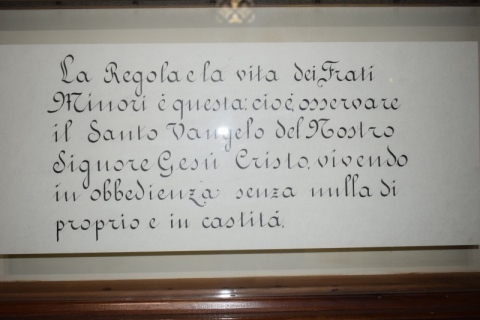 La Regola e la vita dei Frati
Minori è questa: cioè, osservare
il Santo Vangelo del Nostro
Signore Gesù Cristo, vivendo
in obbedienza senza nulla di
proprio e in castità.